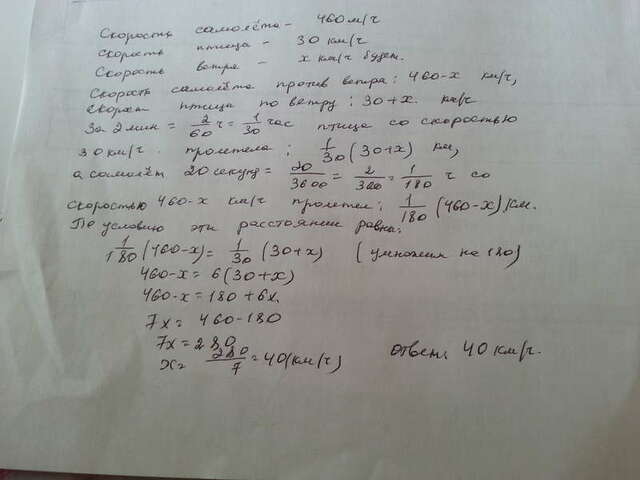 Скорость самолёта - 460 м/ч
скорость птица - 30 км/ч
Скорость ветра - x км/ч будет.
Скорость самолёта против ветра: 460-x км/ч,
скорост птица по ветру: 30+x. км/ч
За 2 мин = 2/60 ч = 1/30 час птица со скоростью
30 км/ч. пролетела; 1/30 (30+x) км,
а самолёт 20 секунд = 20/3600 = 2/360 = 1/180 ч со
скоростью 460-x км/ч пролетел: 1/180 (460-x) км.
По условию эти расстоянии равна:
1/180 (460-x) = 1/30 (30+x) (умножим на 180)
460-x = 6(30+x)
460-x = 180+6x
7x = 460-180
7x = 280
x = 280/7 = 40 (км/ч) ответ: 40 км/ч.